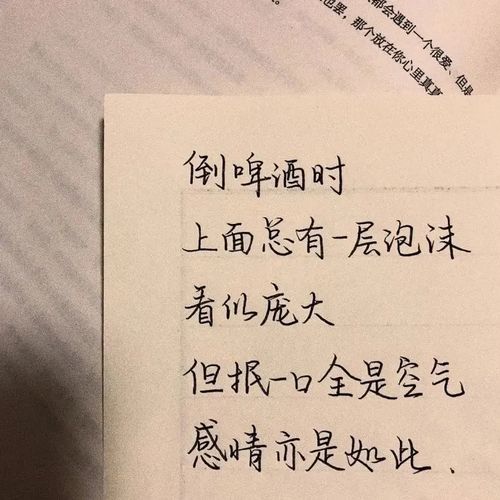 都会遇到一个很爱、但是
也罢，那个放在你心里真真
倒啤酒时
上面总有一层泡沫
看似庞大
但抿一口全是空气
感情亦是如此.